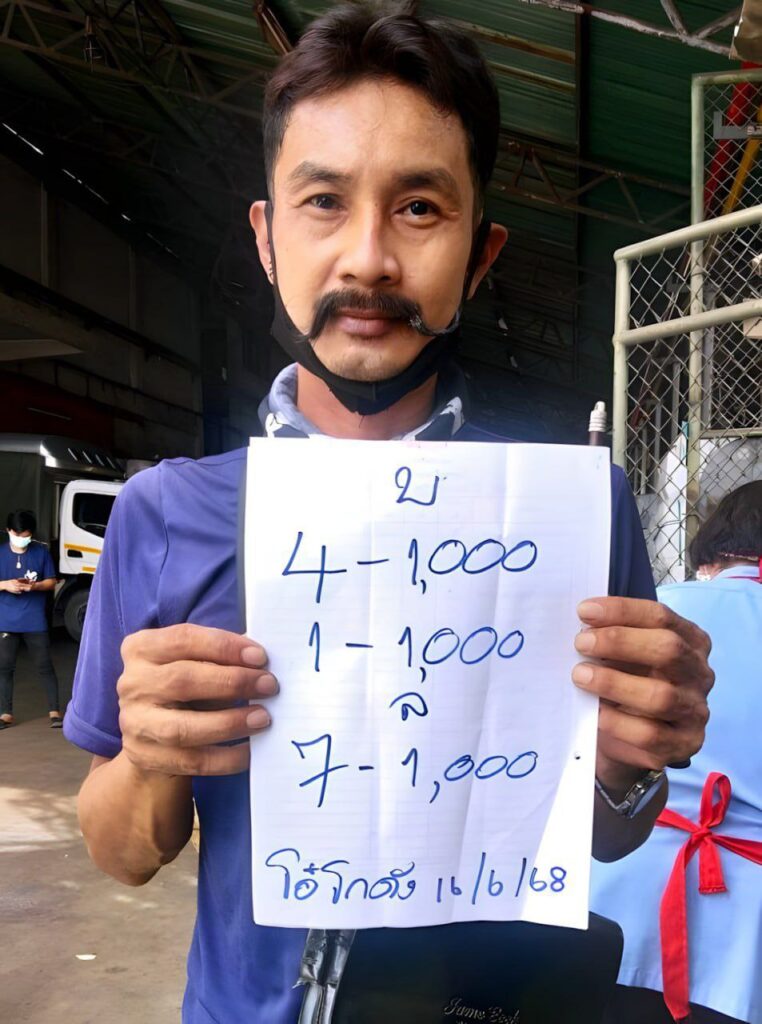 บ
4 - 1,000
1 - 1,000
ล
7 - 1,000
โอ๋โกดัง 16/6/68